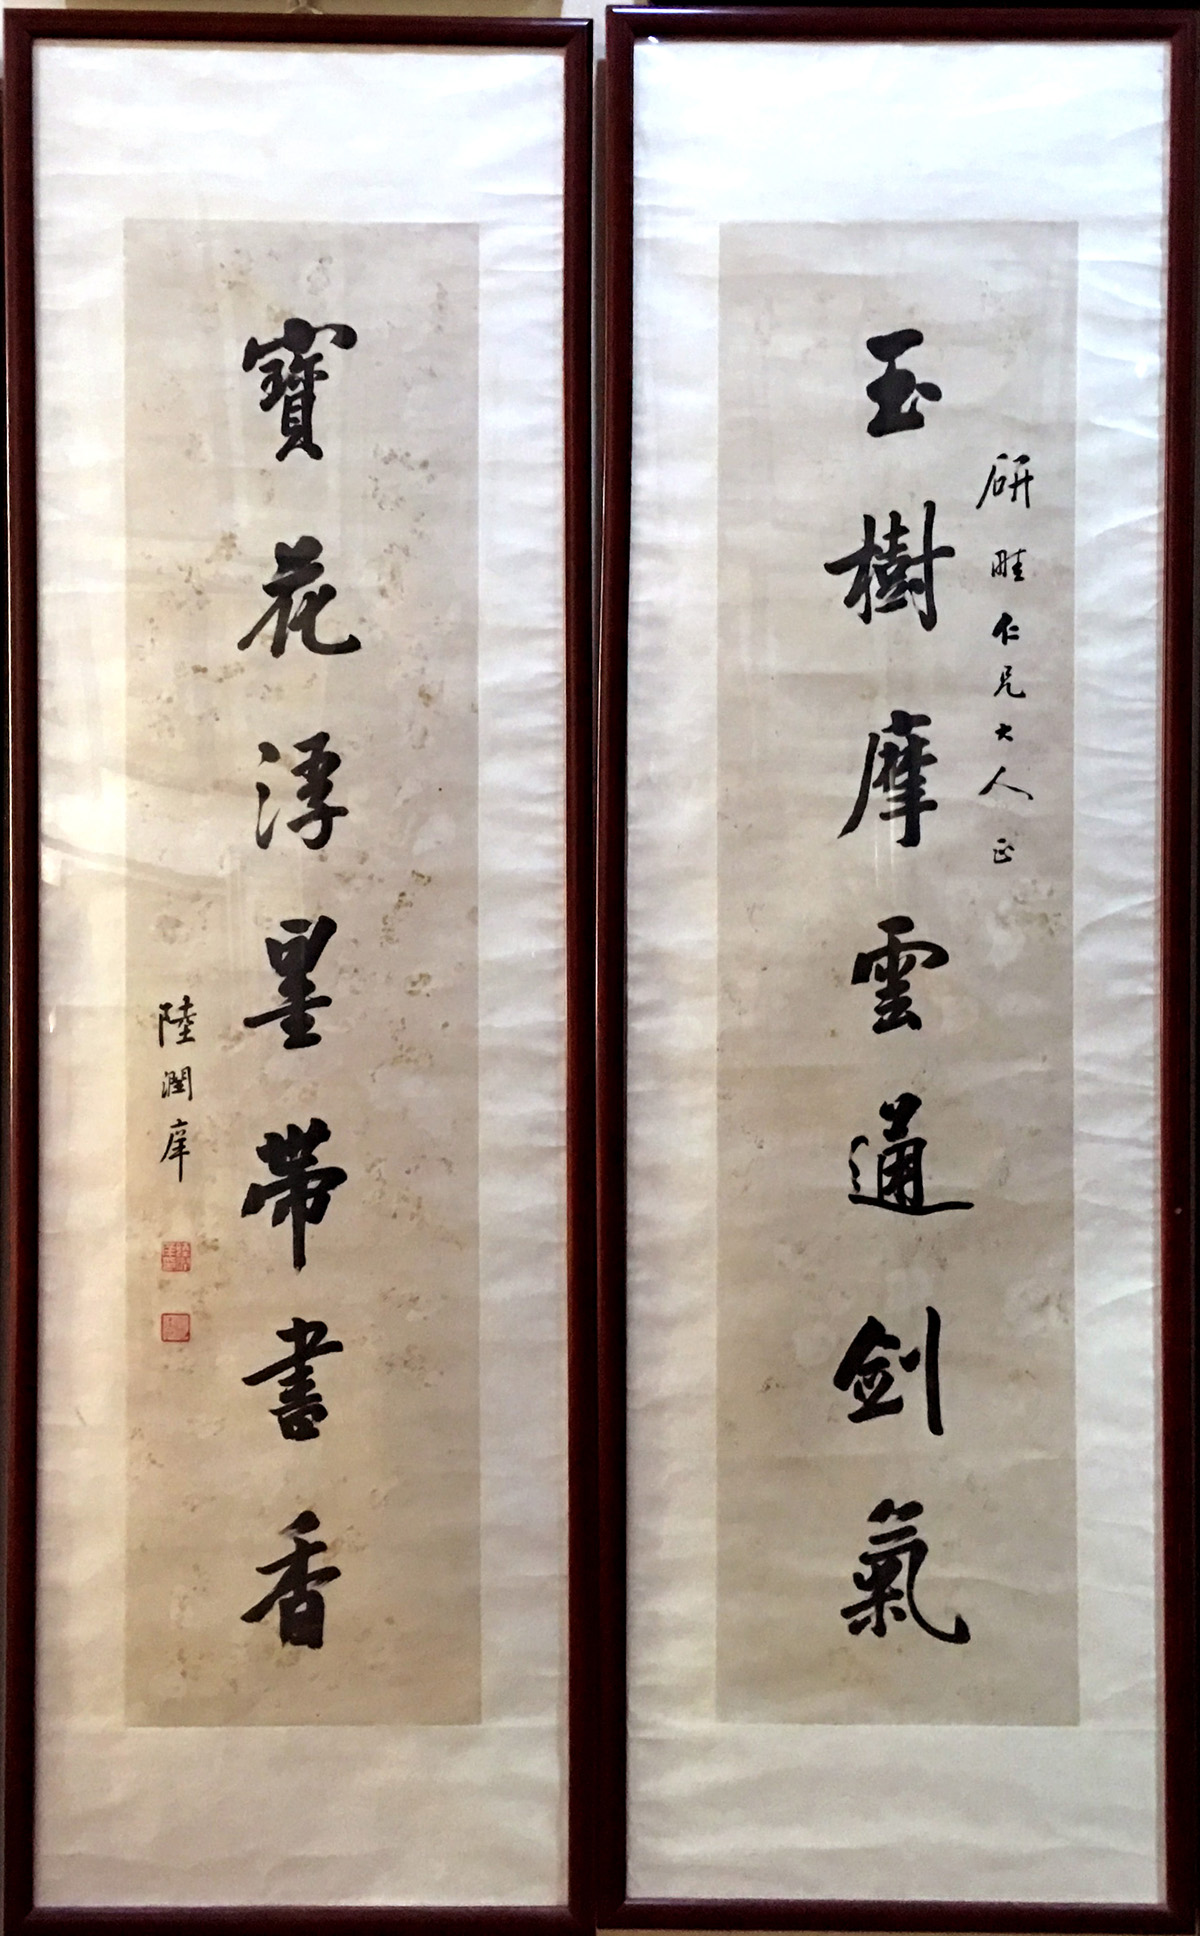 研畦仁兄大人正
玉樹摩雲通劍氣
寶花浮墨帶書香
陸潤庠